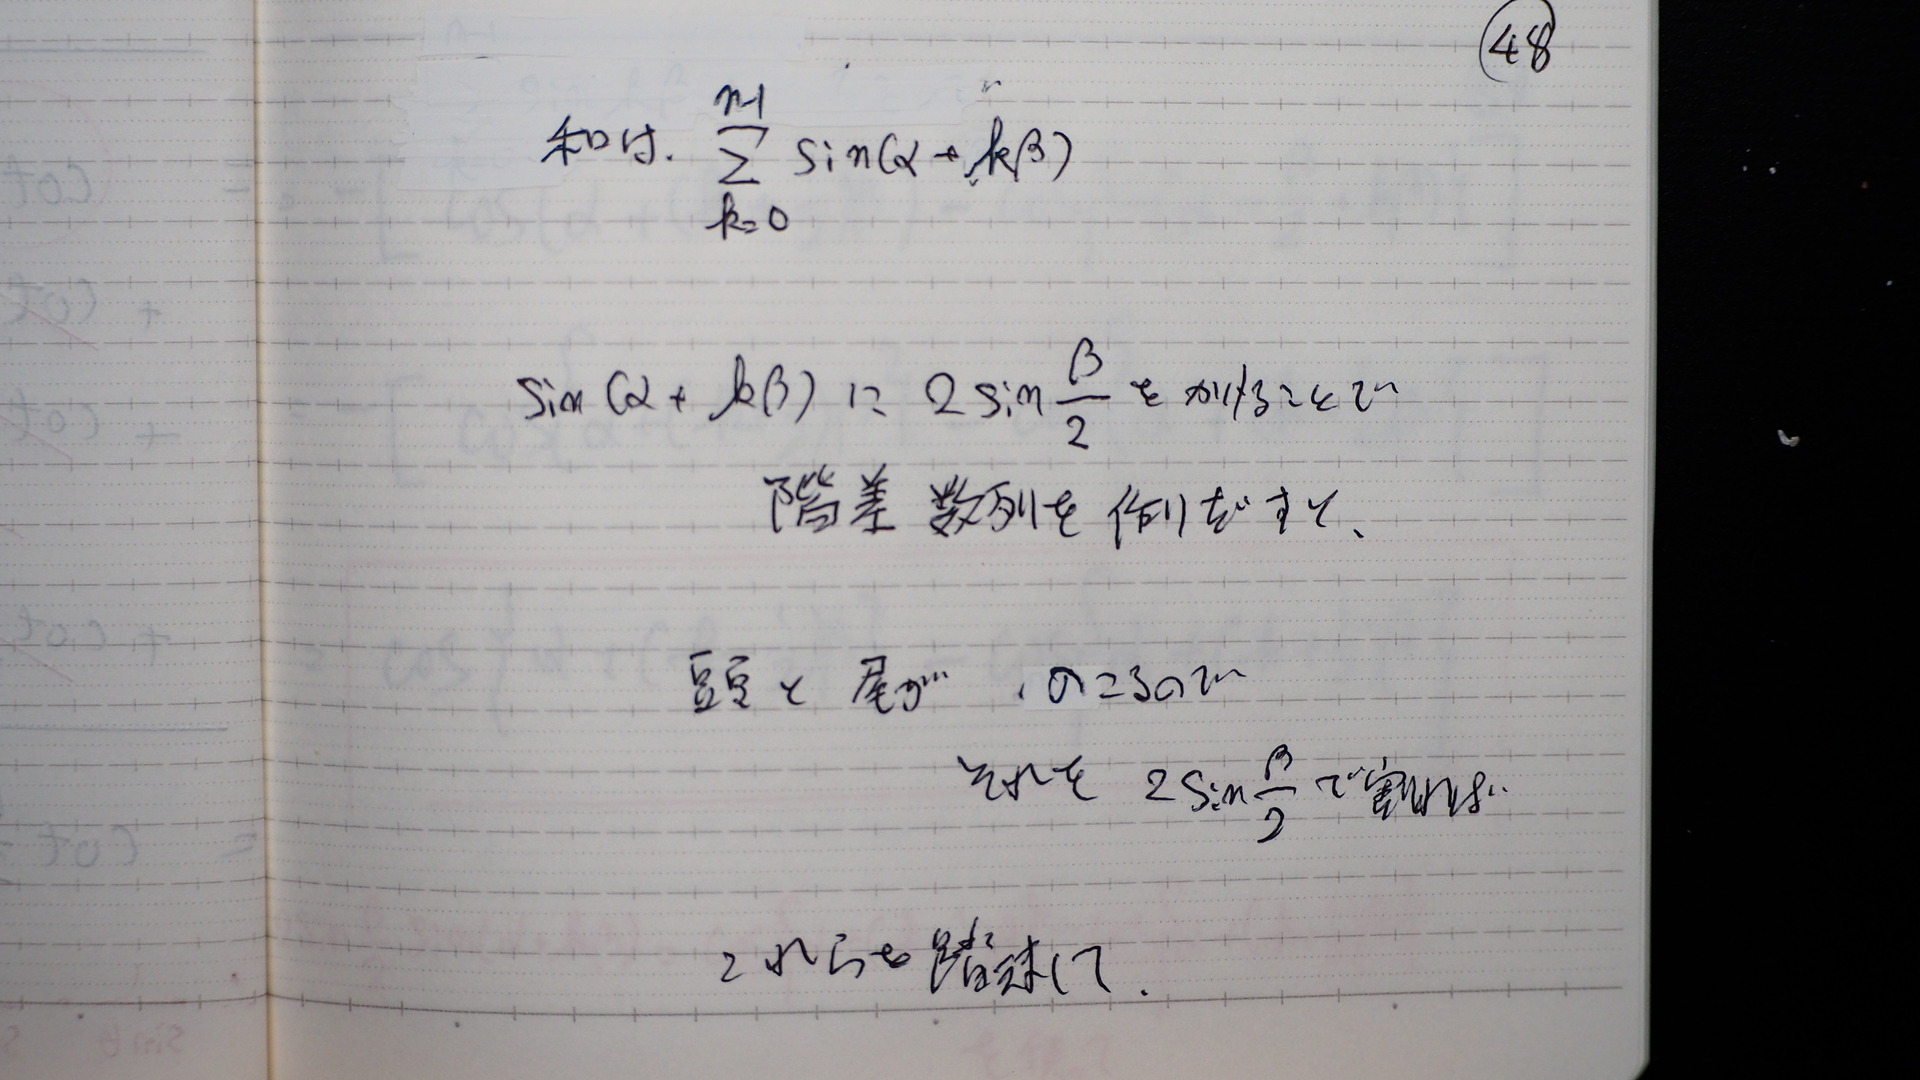 48
和は、 \sum_{k=0}^{n-1} sin(α + kβ)
sin(α + kβ) に 2 sin β/2 を かけることで
階差数列を作りだすと、
頭と尾が のこるので
それを 2 sin β/2 で割れば..
これらを踏まして.